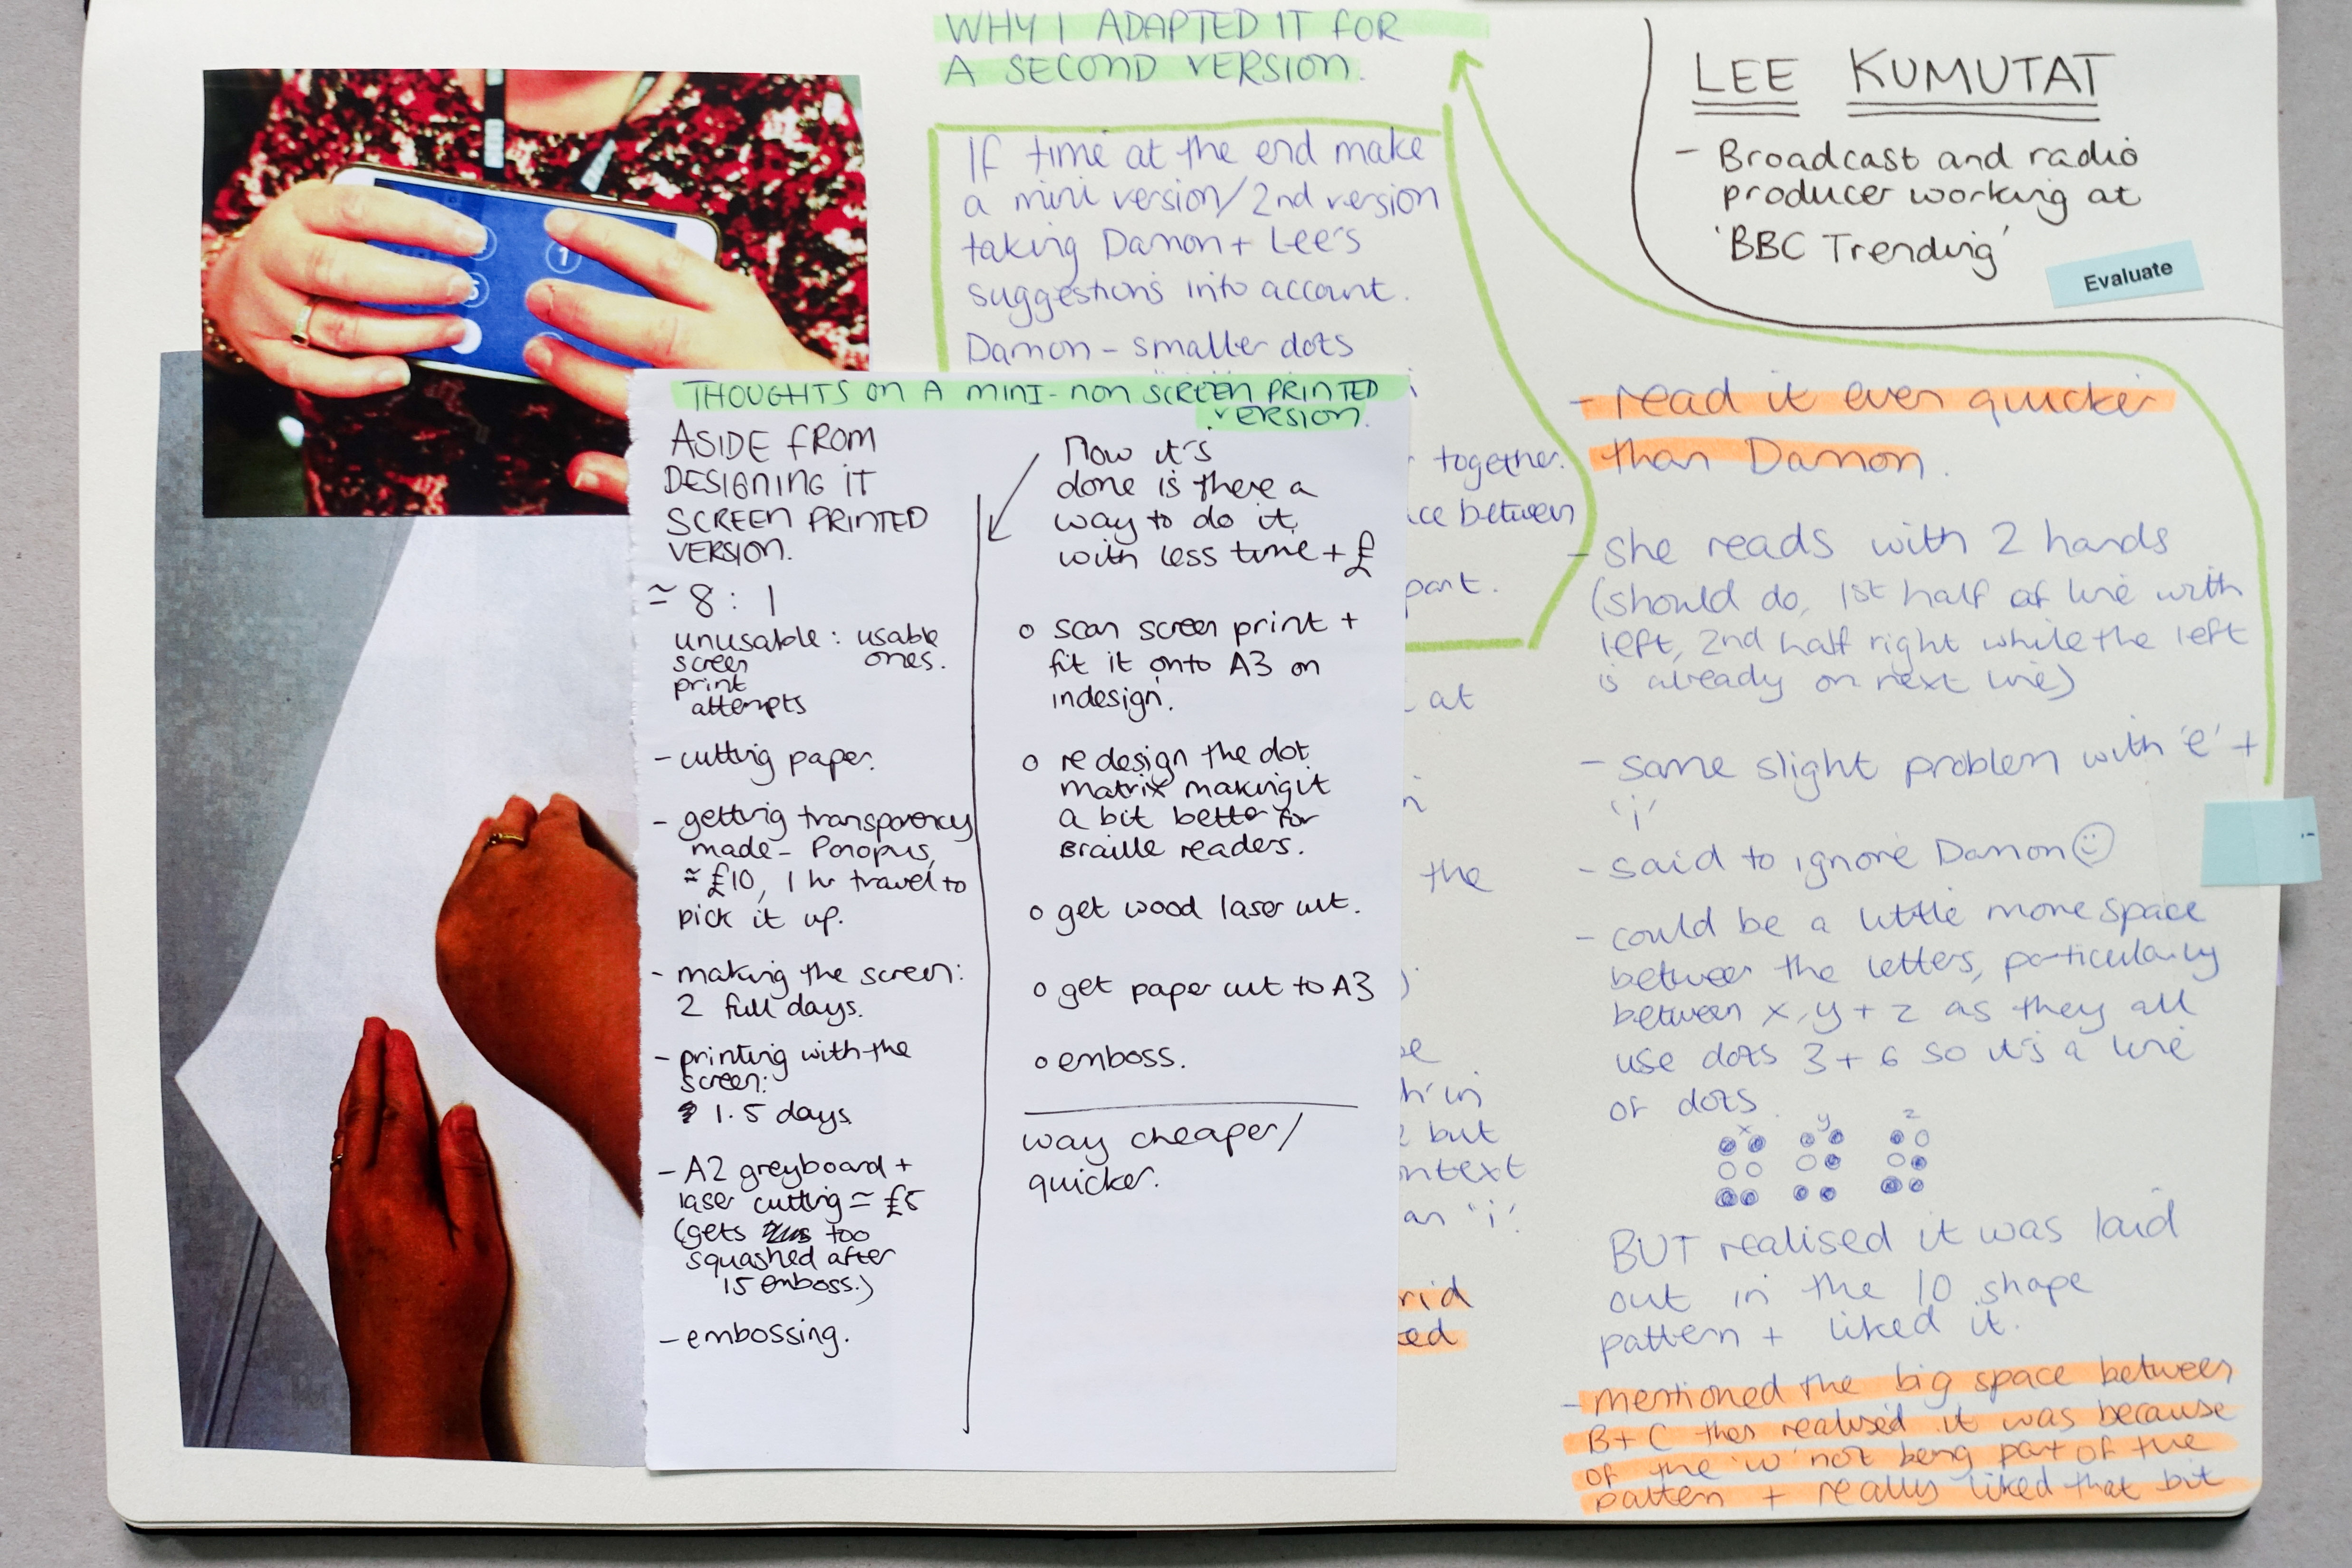 WHY I ADAPTED IT FOR
A SECOND VERSION.
If time at the end make
a mini version/2nd version
taking Damon + Lee's
suggestions into account.
Damon - smaller dots
together.
between
part.
at
the
in
but
an 'i'.
THOUGHTS ON A MINI-NON SCREEN PRINTED
VERSION.
ASIDE FROM
DESIGNING IT
SCREEN PRINTED
VERSION.
≈ 8 : 1
unusable : usable
screen ones.
print
attempts
- cutting paper.
- getting transparency
made - Ponopus,
≈ £10, 1 hr travel to
pick it up.
- making the screen:
2 full days.
- printing with the
screen:
1.5 days
- A2 greyboard +
laser cutting ≈ £5
(gets too
squashed after
15 emboss.)
- embossing.
Now it's
done is there a
way to do it
with less time + £
o scan screen print +
fit it onto A3 on
indesign.
o redesign the dot
matrix making it
a bit better for
Braille readers.
o get wood laser cut.
o get paper cut to A3
o emboss.
way cheaper/
quicker.
LEE KUMUTAT
- Broadcast and radio
producer working at
'BBC Trending'
Evaluate
- read it even quicker
than Damon.
- she reads with 2 hands
(should do, 1st half of line with
left, 2nd half right while the left
is already on next line)
- same slight problem with 'e' +
'i'
- said to ignore Damon
- could be a little more space
between the letters, particularly
between x, y + z as they all
use dots 3 + 6 so it's a line
of dots
x y z
BUT realised it was laid
out in the 10 shape
pattern + liked it.
- mentioned the big space between
B + C then realised it was because
of the 'w' not being part of the
pattern + really liked that bit
1